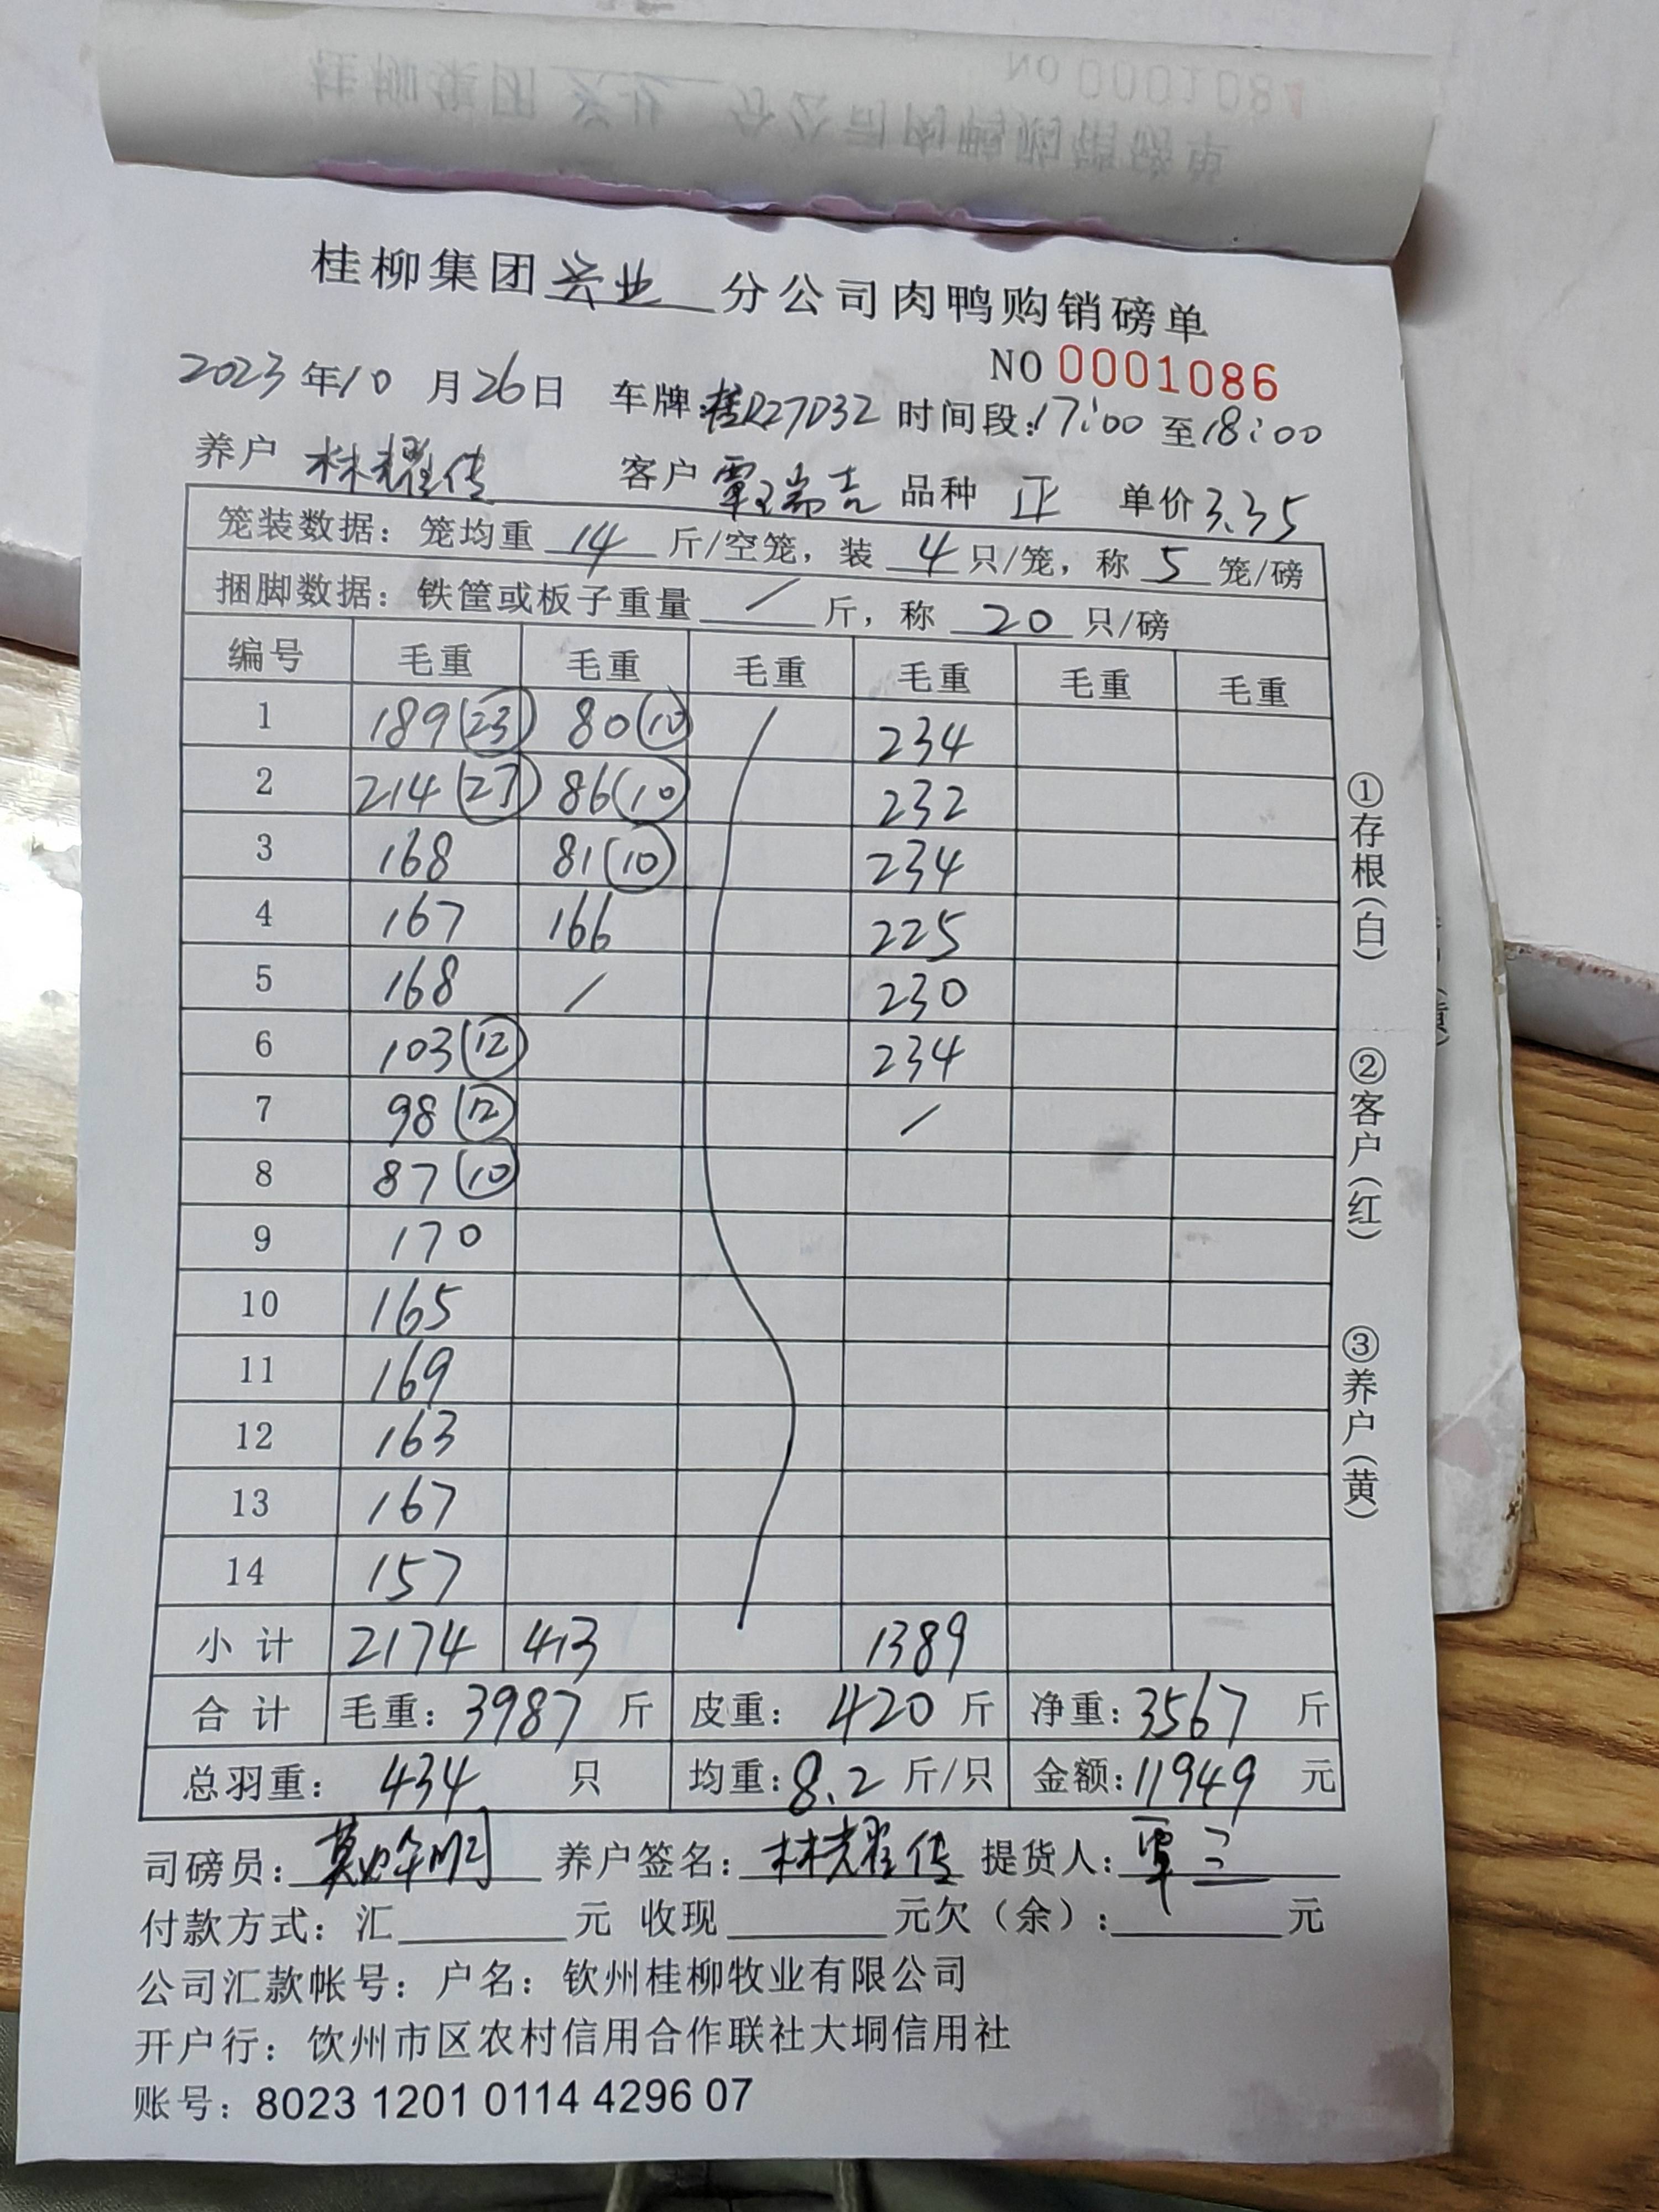 桂柳集团兴业分公司肉鸭购销磅单
NO 0001086
2023年10月26日 车牌:桂R27D32 时间段:17:00至18:00
养户 林耀传 客户 覃瑞吉 品种 正 单价3.35
笼装数据：笼均重 14 斤/空笼，装 4 只/笼，称 5 笼/磅
捆脚数据：铁筐或板子重量 / 斤，称 20 只/磅
编号 毛重 毛重 毛重 毛重 毛重 毛重
1 189(23) 80(10) 234
2 214(27) 86(10) 232
3 168 81(10) 234
4 167 166 225
5 168 / 230
6 103(12) 234
7 98(12) /
8 87(10)
9 170
10 165
11 169
12 163
13 167
14 157
小计 2174 413 1389
合计 毛重：3987 斤 皮重：420 斤 净重：3567 斤
总羽重：434 只 均重：8.2 斤/只 金额：11949 元
司磅员： 养户签名：林耀传 提货人：覃三
付款方式：汇 元 收现 元欠（余）： 元
公司汇款帐号：户名：钦州桂柳牧业有限公司
开户行：钦州市区农村信用合作联社大垌信用社
账号：8023 1201 0114 4296 07
①存根（白）
②客户（红）
③养户（黄）